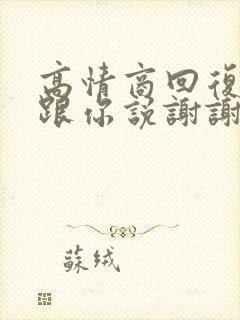 高情商回復
跟你説謝謝
蘇绒